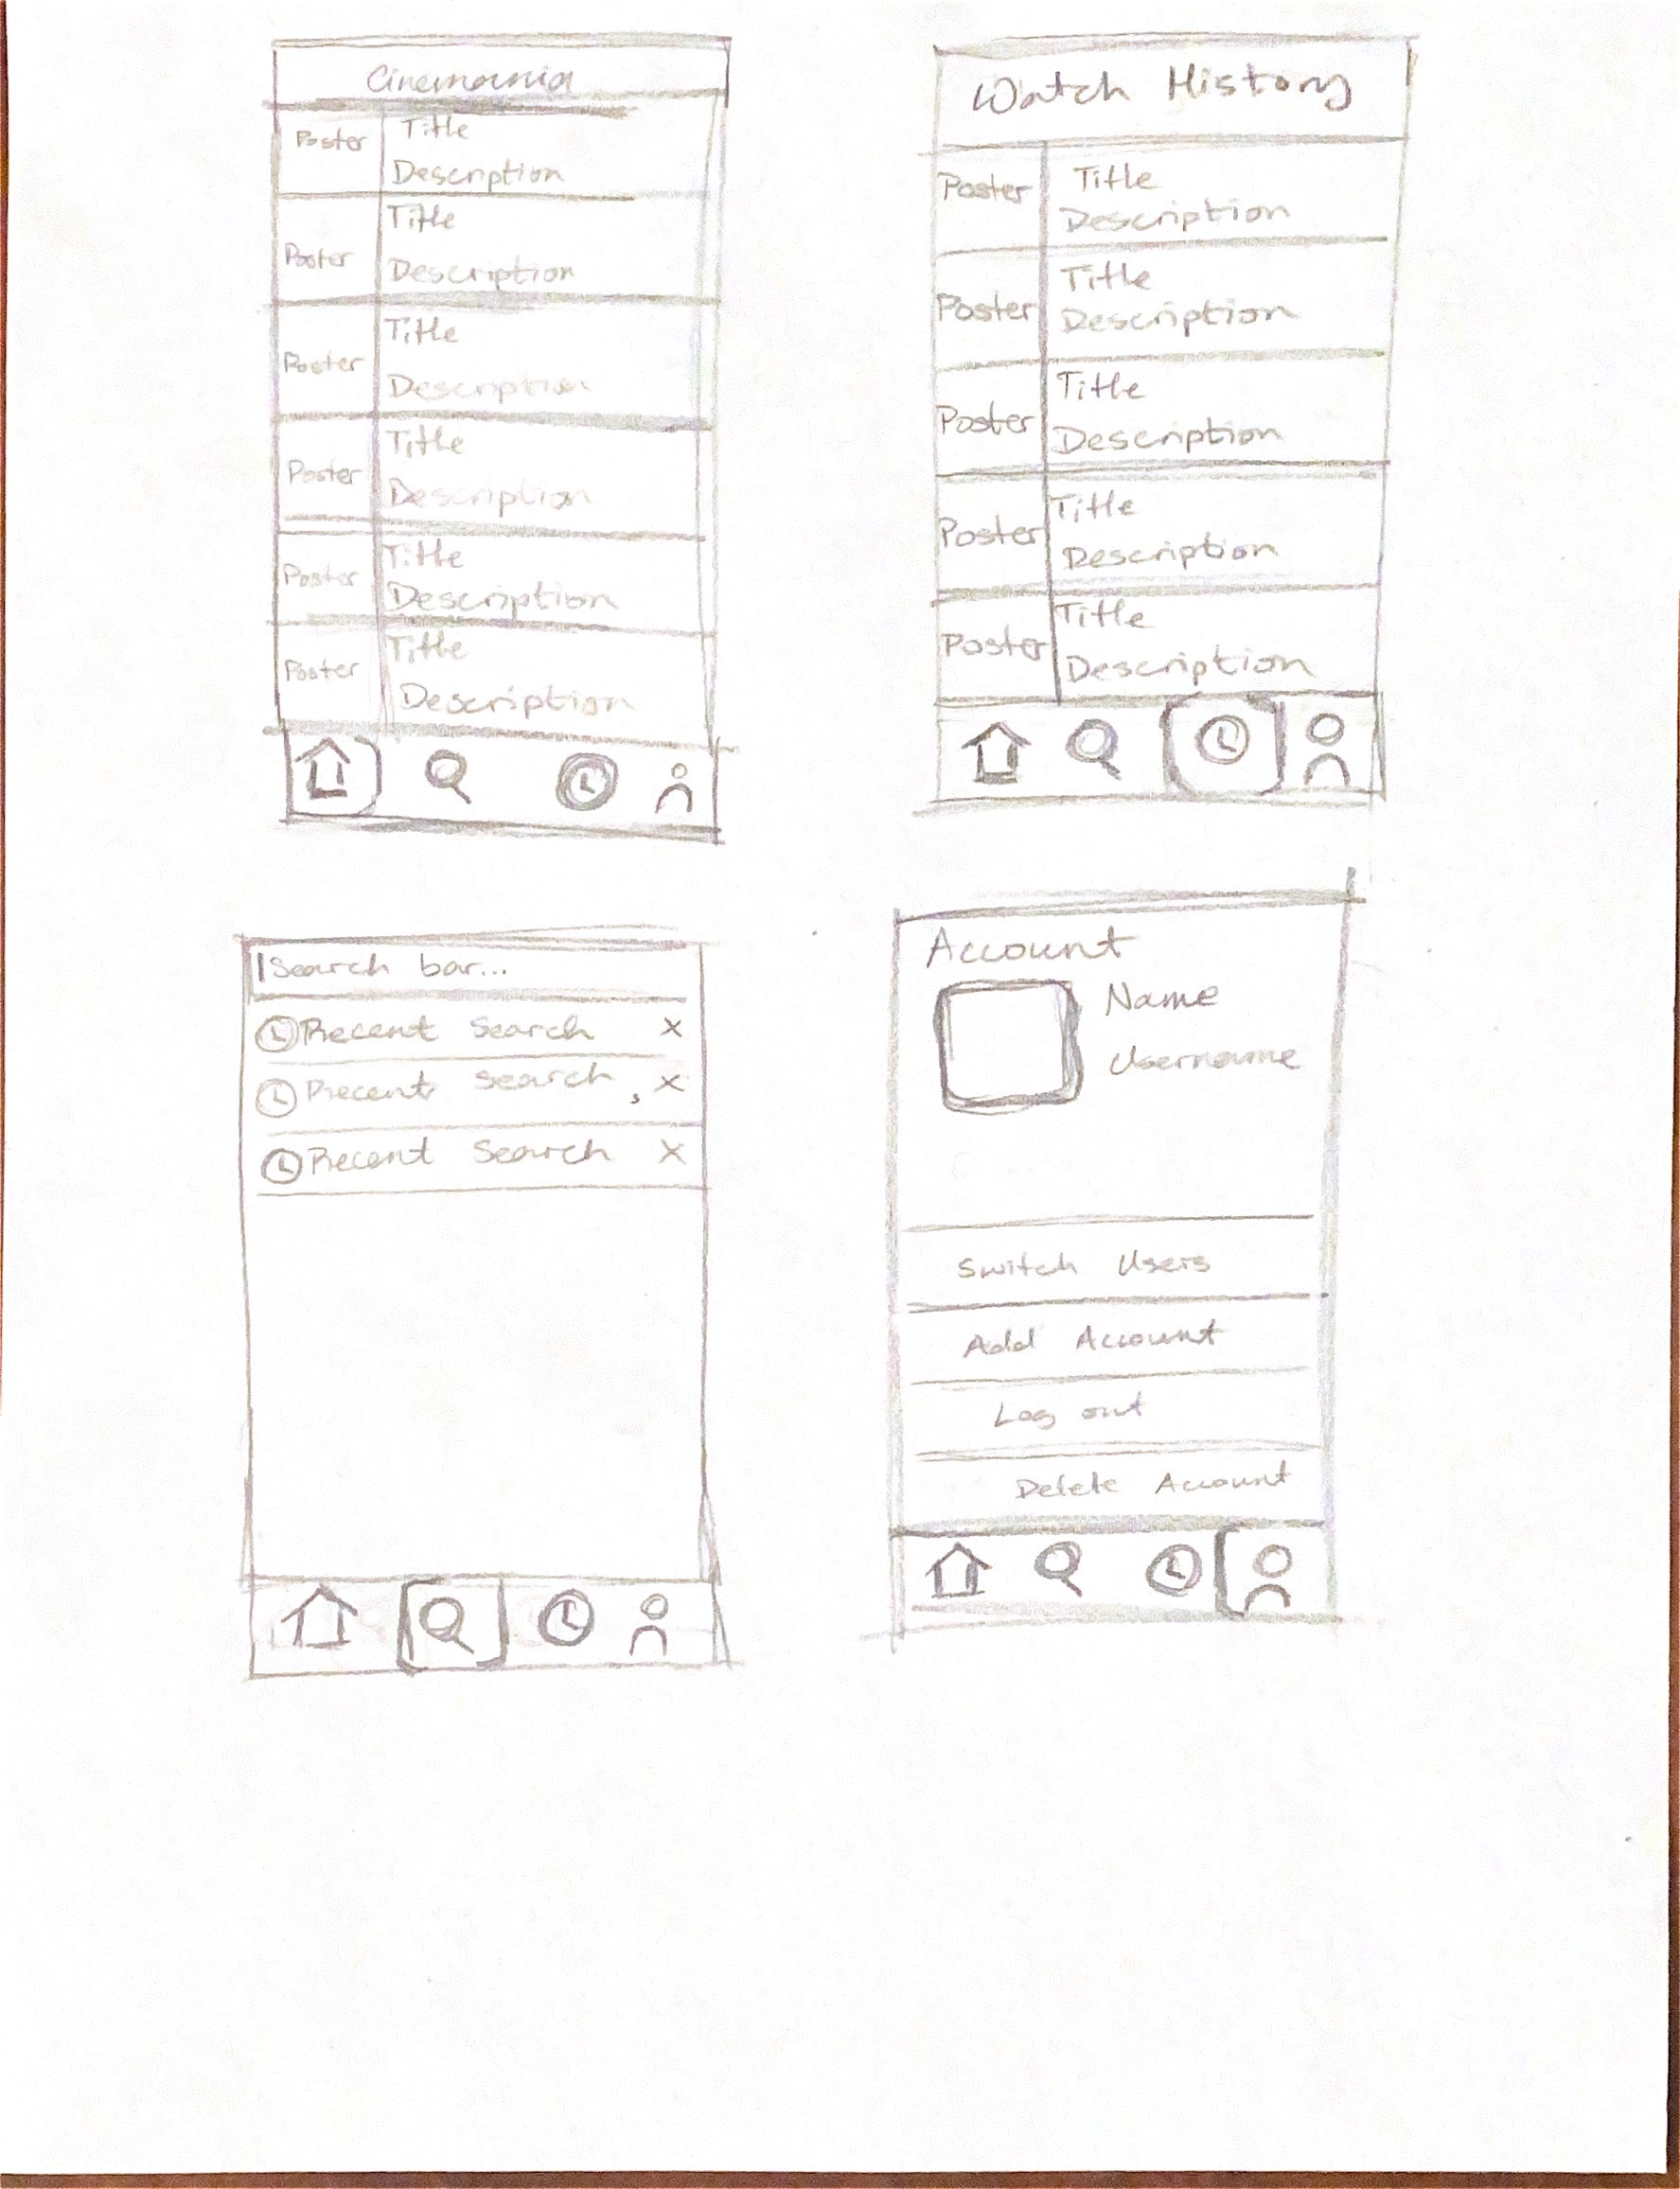 Cinemania
Poster
Title
Description
Poster
Title
Description
Poster
Title
Description
Poster
Title
Description
Poster
Title
Description
Poster
Title
Description
Watch History
Poster
Title
Description
Poster
Title
Description
Poster
Title
Description
Poster
Title
Description
Poster
Title
Description
Search bar...
Recent Search X
Recent Search X
Recent Search X
Account
Name
Username
Switch Users
Add Account
Log out
Delete Account